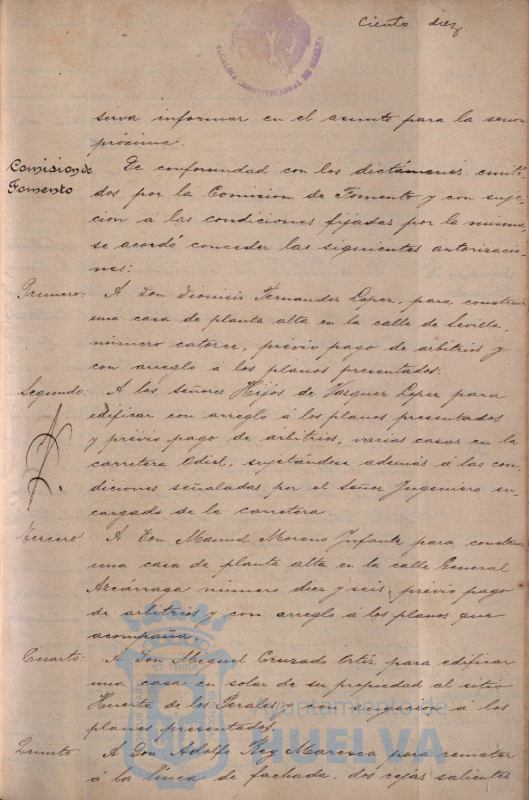 Ciento diez
ALCALDIA CONSTITUCIONAL DE HUELVA
sirva informar en el asunto para la sesion
próxima.
Comision de
Fomento
De conformidad con los dictámenes emiti-
dos por la Comision de Fomento y con suje-
cion á las condiciones fijadas por la misma,
se acordó conceder las siguientes autorizacio-
nes:
Primero: A Don Dionisio Fernandez Lopez, para construir
una casa de planta alta en la calle de Sevilla,
número catorce, prévio pago de arbitrios y
con arreglo á los planos presentados.
Segundo: A los señores Hijos de Vazquez Lopez para
edificar con arreglo á los planos presentados
y prévio pago de arbitrios, varias casas en la
carretera Odiel, sujetándose además á las con-
diciones señaladas por el señor Ingeniero en-
cargado de la carretera.
Tercero: A Don Manuel Moreno Infante para construir
una casa de planta alta en la calle General
Azcárraga número diez y seis, prévio pago
de arbitrios y con arreglo á los planos que
acompaña.
Cuarto: A Don Miguel Cruzado Ortiz para edificar
una casa en solar de su propiedad al sitio
Huerta de los Perales y con sugecion á los
planos presentados.
Quinto: A Don Adolfo Rey Maresca para remeter
á la línea de fachada dos rejas salientes
Ayuntamiento de
HUELVA